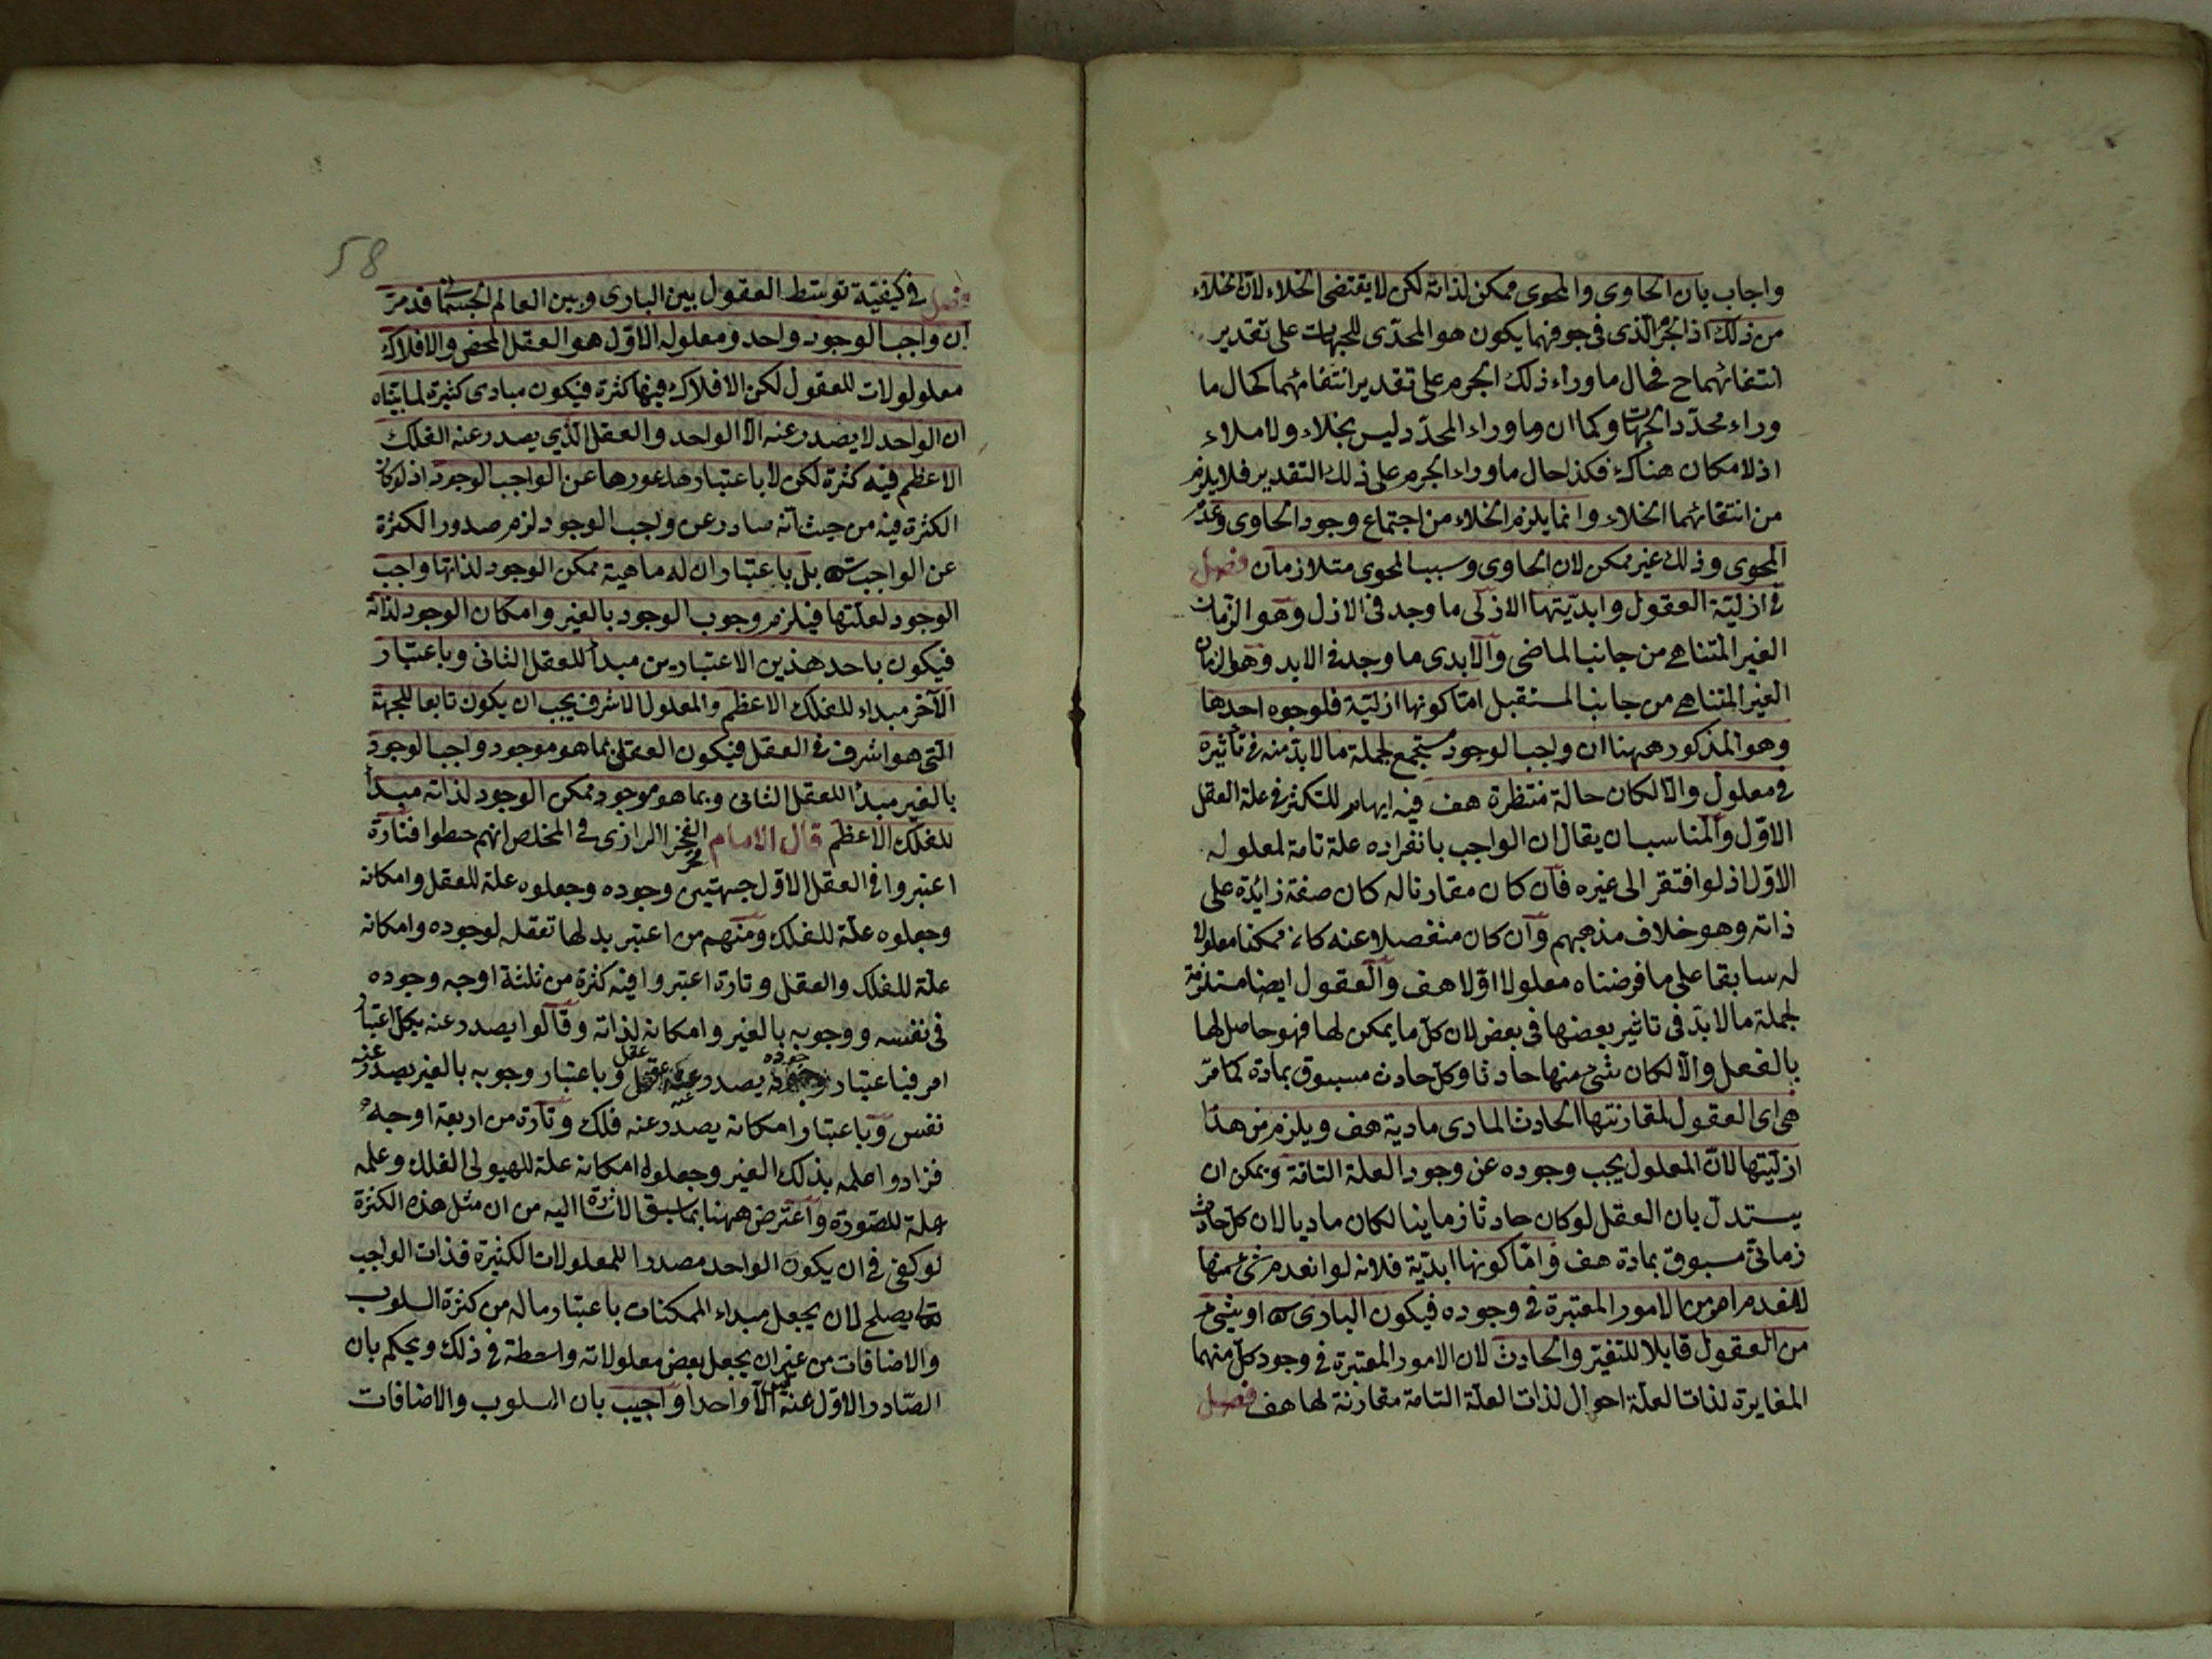 واجاب بان الحاوى والمحوى ممكن لذاته لكن لا يقتضى الخلاء لان الخلاء
من ذلك اذ الجرم الذى فى جوفهما يكون هو المحدى للجهات على تقدير
انتفائهما ح فحال ما وراء ذلك الجرم على تقدير انتفائهما كحال ما
وراء محدد الجهات وكما ان وما وراء المحدد ليس بخلاء ولا ملاء
اذ لا مكان هناك فكذا حال ما وراء الجرم على ذلك التقدير فلا يلزم
من انتفائهما الخلاء وانما يلزم الخلاء من اجتماع وجود الحاوى وعدم
المحوى وذلك غير ممكن لان الحاوى وسبب المحوى متلازمان فصل
فى ازلية العقول وابديتها الازلى ما وجد فى الازل وهو الزمان
الغير المتناهى من جانب الماضى والابدى ما وجد فى الابد وهو الزمان
الغير المتناهى من جانب المستقبل اما كونها ازلية فلوجوه احدها
وهو المذكور ههنا ان واجب الوجود مستجمع لجملة ما لا بد منه فى تأثيره
فى معلول والا لكان حالة منتظرة هف فيه ايهام للتكثر فى علة العقل
الاول والمناسب ان يقال ان الواجب بانفراده علة تامة لمعلوله
الاول اذ لو افتقر الى غيره فان كان مقارنا له كان صفة زائدة على
ذاته وهو خلاف مذهبهم وان كان منفصلا عنه كان ممكنا معلولا
له سابقا على ما فرضناه معلولا اولا هف والعقول ايضا مستلزمة
لجملة ما لا بد فى تاثير بعضها فى بعض لان كل ما يمكن لها فهو حاصل لها
بالفعل والا لكان شئ منها حادثا وكل حادث مسبوق بمادة كما مر
هى اى العقول لمقارنتها الحادث المادى مادية هف ويلزم من هذا
ازليتها لان المعلول يجب وجوده عن وجود العلة التامة ويمكن ان
يستدل بان العقل لو كان حادثا زمانيا لكان ماديا لان كل حادث
زمانى مسبوق بمادة هف واما كونها ابدية فلانه لو انعدم شئ منها
لانعدم امر من الامور المعتبرة فى وجوده فيكون البارى او شئ
من العقول قابلا للتغير والحادث لان الامور المعتبرة فى وجود كل منهما
المغايرة لذات العلة احوال لذات العلة التامة مقارنة لها هف فصل
58
فصل فى كيفية توسط العقول بين البارى وبين العالم الجسمانى قد مر
ان واجب الوجود واحد ومعلوله الاول هو العقل المحض والافلاك
معلولولات للعقول لكن الافلاك فيها كثرة فيكون مبادى كثيرة لما بيناه
ان الواحد لا يصدر عنه الا الواحد والعقل الذى يصدر عنه الفلك
الاعظم فيه كثرة لكن لا باعتبار صدورها عن الواجب الوجود اذ لو كان
الكثرة فيه من حيث انه صادر عن واجب الوجود لزم صدور الكثرة
عن الواجب بل باعتبار ان له ماهية ممكن الوجود لذاتها واجب
الوجود لعلتها فيلزم وجوب الوجود بالغير وامكان الوجود لذاته
فيكون باحد هذين الاعتبارين مبدأ للعقل الثانى وباعتبار
الآخر مبداء للفلك الاعظم والمعلول الاشرف يجب ان يكون تابعا للجهة
التى هو اشرف فى العقل فيكون العقل بما هو موجود واجب الوجود
بالغير مبدأ للعقل الثانى وبما هو موجود ممكن الوجود لذاته مبدأ
للفلك الاعظم قال الامام الفخر الرازى فى الملخص انهم خطوا فتارة
اعتبروا فى العقل الاول جهتين وجوده وجعلوه علة للعقل وامكانه
وجعلوه علة للفلك ومنهم من اعتبر بدلها تعقله لوجوده وامكانه
علة للفلك والعقل وتارة اعتبروا فيه كثرة من ثلثة اوجه وجوده
فى نفسه ووجوبه بالغير وامكانه لذاته وقالوا يصدر عنه بكل اعتبار
امر فباعتبار وجوده يصدر عنه عقل وباعتبار وجوبه بالغير يصدر عنه
نفس وباعتبار امكانه يصدر عنه فلك وتارة من اربعة اوجه
فزادوا علمه بذلك الغير وجعلوا امكانه علة للهيولى الفلك وعلمه
علة للصورة واعترض ههنا بما سبق الاشارة اليه من ان مثل هذه الكثرة
لو كفى فى ان يكون الواحد مصدرا للمعلولات الكثيرة فذات الواجب
تعالى يصلح لان يجعل مبداء الممكنات باعتبار ماله من كثرة السلوب
والاضافات من غير ان يجعل بعض معلولاته واسطة فى ذلك ويحكم بان
الصادر الاول عنه ليس الا واحدا واجيب بان السلوب والاضافات